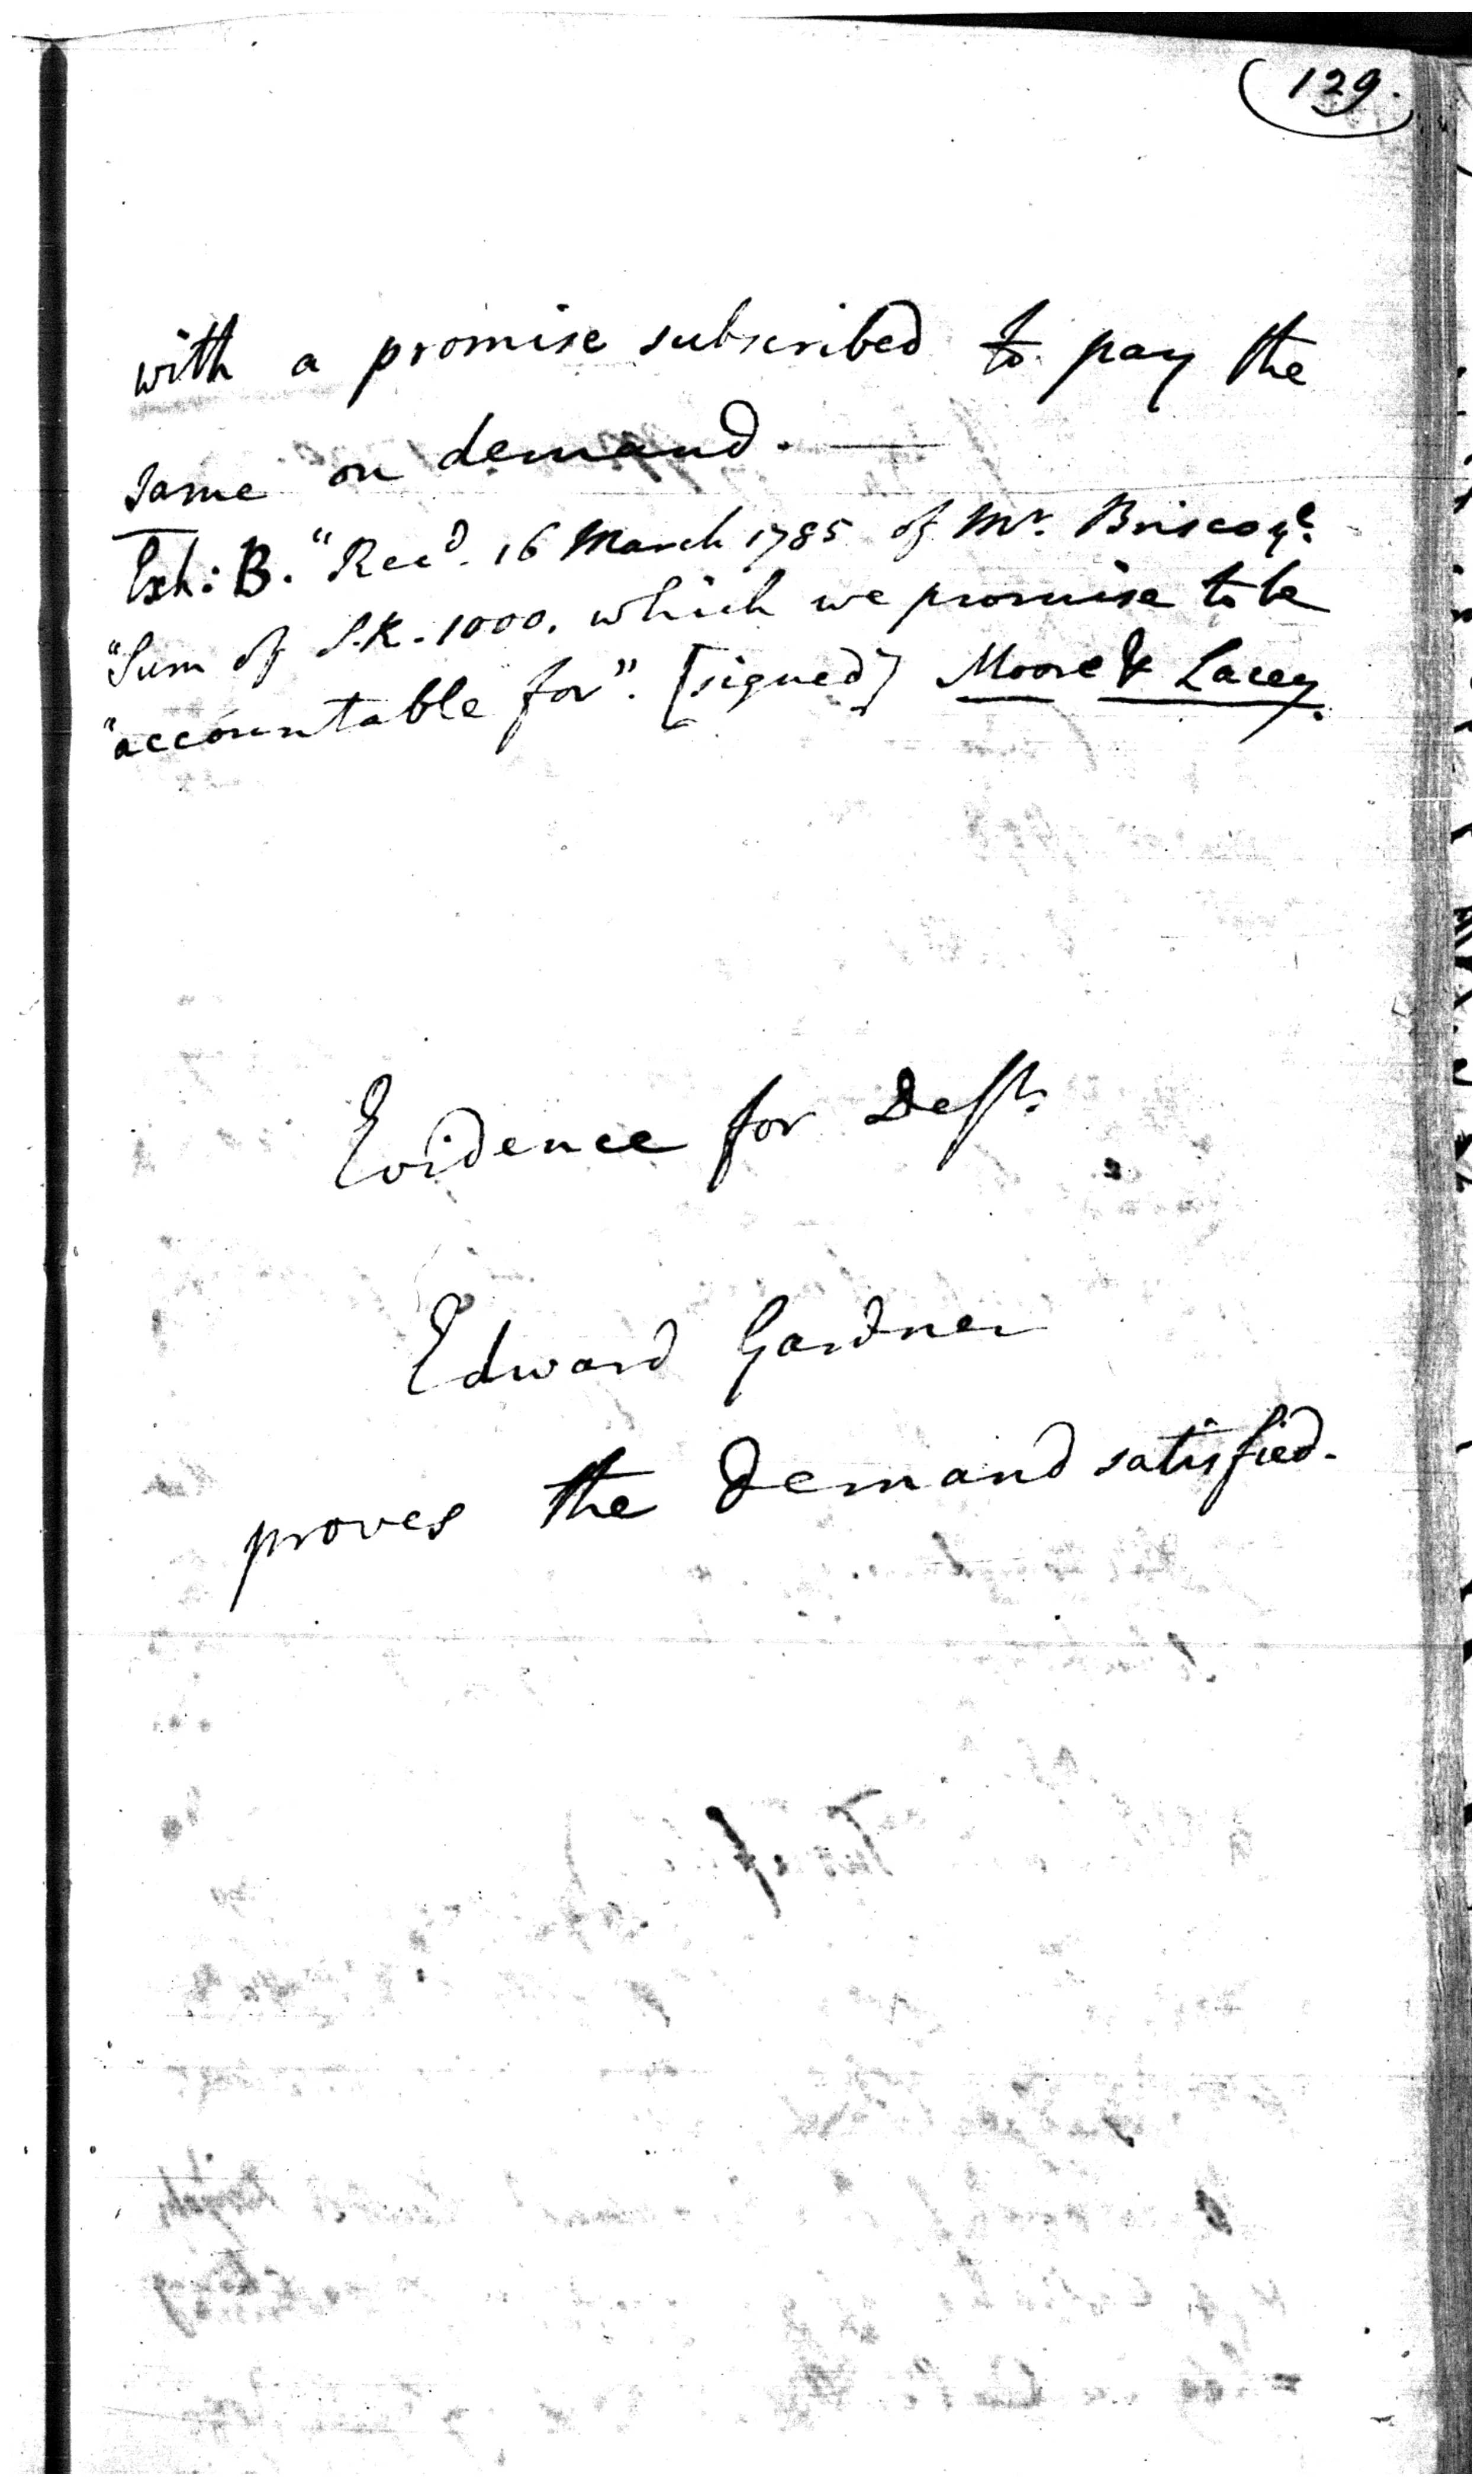 129.
with a promise subscribed to pay the
same on demand. —
Exh: B. "Recd. 16 March 1785 of Mr. Briscoe ye.
"Sum of S.R. 1000. which we promise to be
"accountable for". [signed] Moore & Lacey.
Evidence for Deft.
Edward Gardner
proves the Demand satisfied.